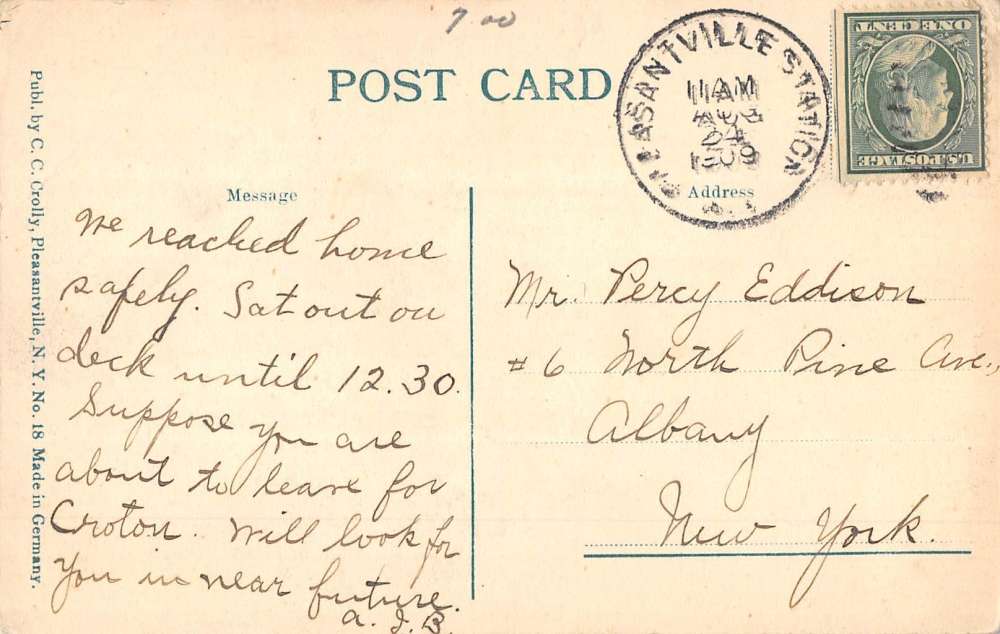 7.00
POST CARD
PLEASANTVILLE STATION
11 AM
AUG
24
1909
ONE CENT
U.S. POSTAGE
Publ. by C. C. Crolly, Pleasantville, N. Y. No. 18 Made in Germany.
Message
We reached home
safely. Sat out on
deck until 12.30.
Suppose you are
about to leave for
Croton. Will look for
you in near future.
a. J. B.
Address
Mr. Percy Eddison
#6 North Pine Ave.,
Albany
New York.